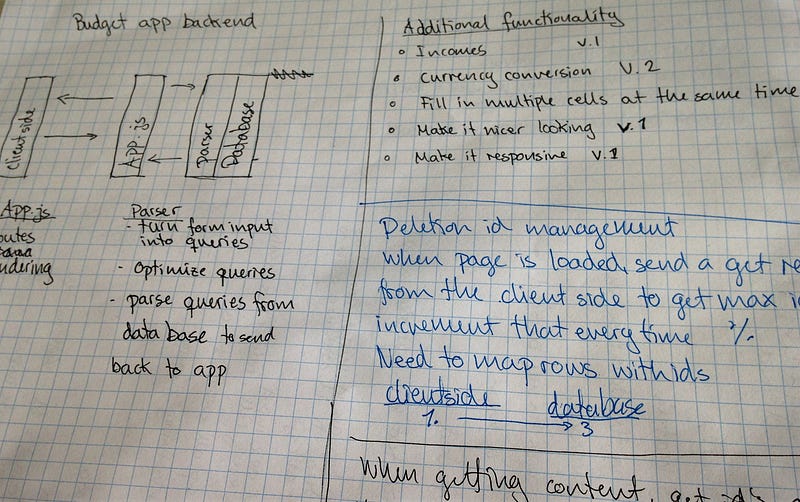 Budget app backend
Clientside
App.js
Parser
Database
App.js
outes
ndering
Parser
- turn form input
into queries
- Optimize queries
- parse queries from
data base to send
back to app
Additional functionality
• Incomes v.1
• Currency conversion v.2
• Fill in multiple cells at the same time
• Make it nicer looking v.1
• Make it responsive v.1
Deletion id management
When page is loaded, send a get re
from the client side to get max i
increment that every time
Need to map rows with ids
clientside database
1. 3
When getting content, get id's